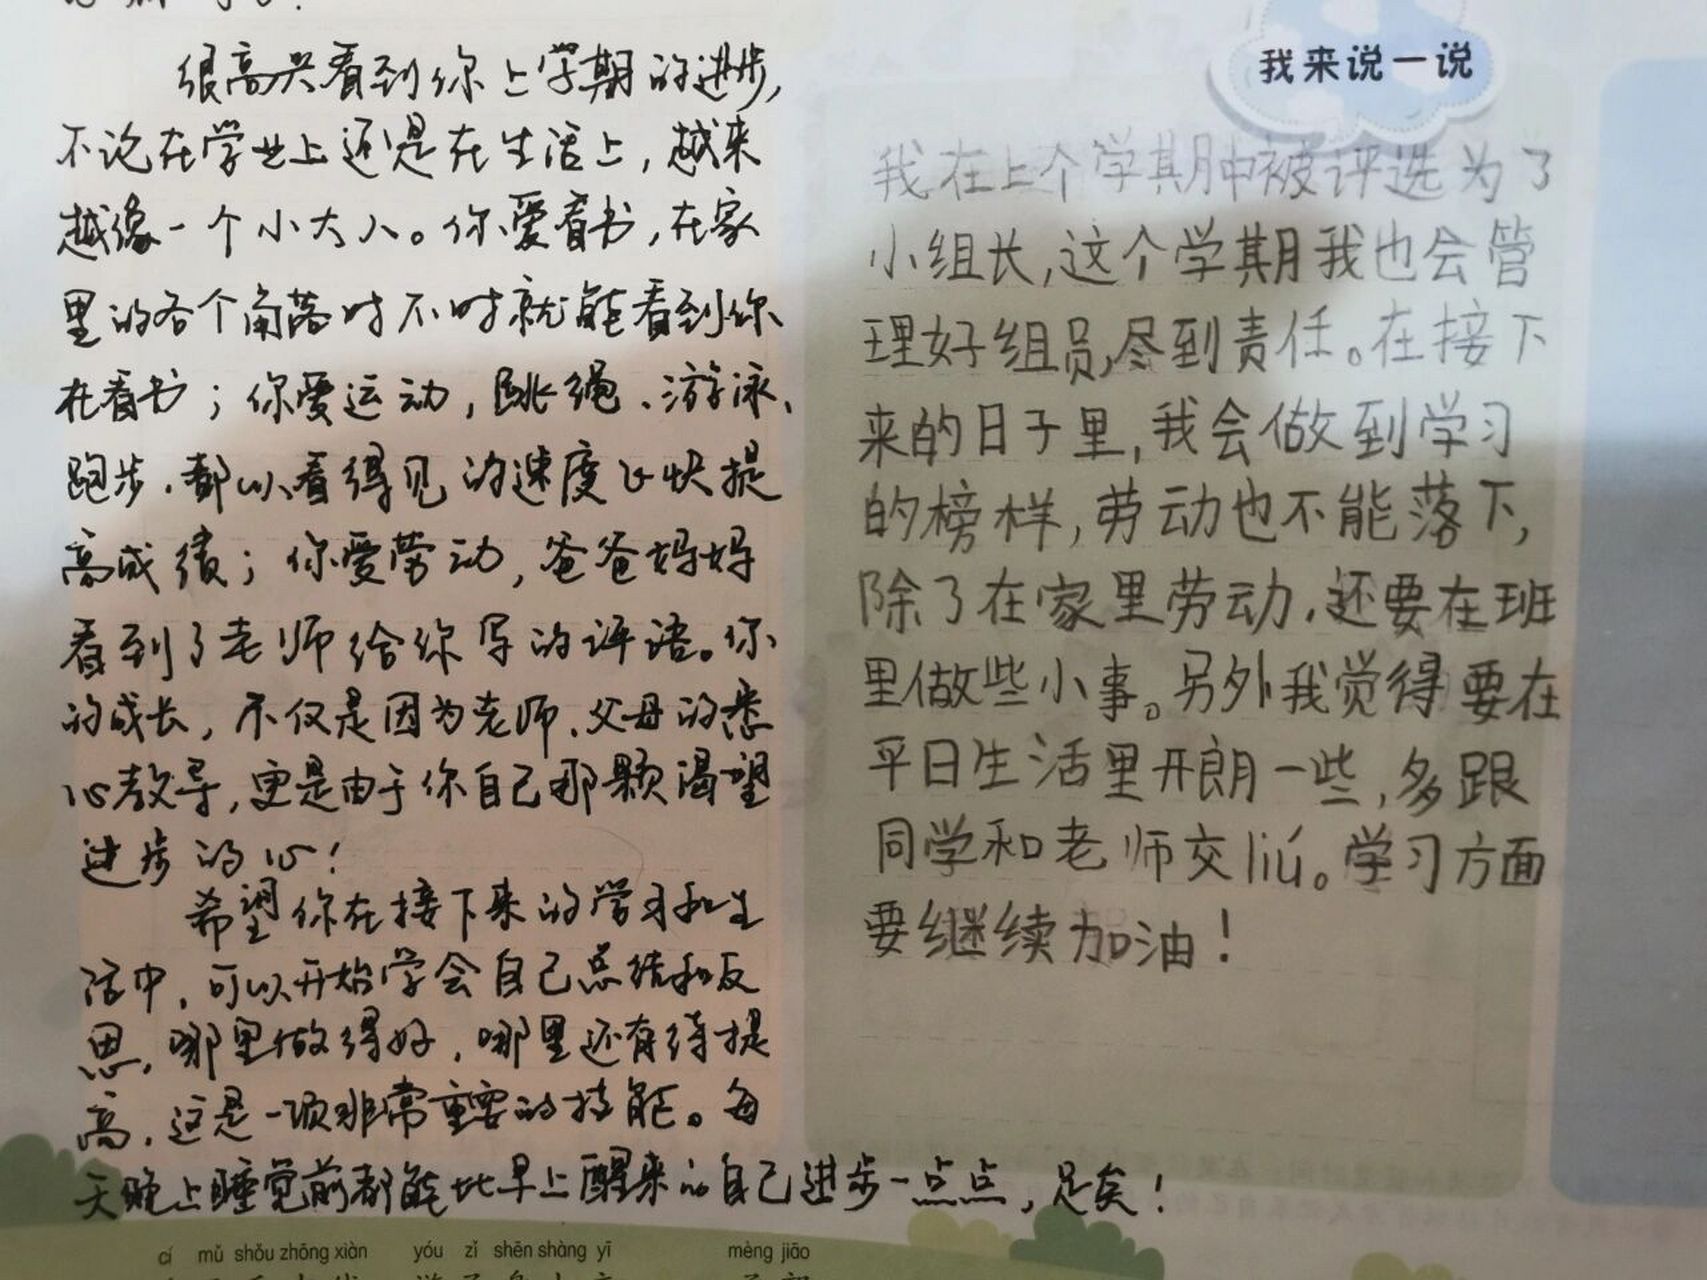 很高兴看到你上学期的进步,
不论在学业上还是在生活上,越来
越像一个小大人。你爱看书,在家
里的各个角落时不时就能看到你
在看书;你爱运动,跳绳、游泳、
跑步,都以看得见的速度飞快提
高成绩;你爱劳动,爸爸妈妈
看到了老师给你写的评语。你
的成长,不仅是因为老师、父母的悉
心教导,更是由于你自己那颗渴望
进步的心!
希望你在接下来的学习和生
活中,可以开始学会自己总结和反
思,哪里做得好,哪里还有待提
高,这是一项非常重要的技能。每
天晚上睡觉前都能比早上醒来的自己进步一点点,足矣!
我来说一说
我在上个学期中被评选为了
小组长,这个学期我也会管
理好组员,尽到责任。在接下
来的日子里,我会做到学习
的榜样,劳动也不能落下,
除了在家里劳动,还要在班
里做些小事。另外我觉得要在
平日生活里开朗一些,多跟
同学和老师交liú。学习方面
要继续加油!
cí mǔ shǒu zhōng xiàn yóu zǐ shēn shàng yī mèng jiāo